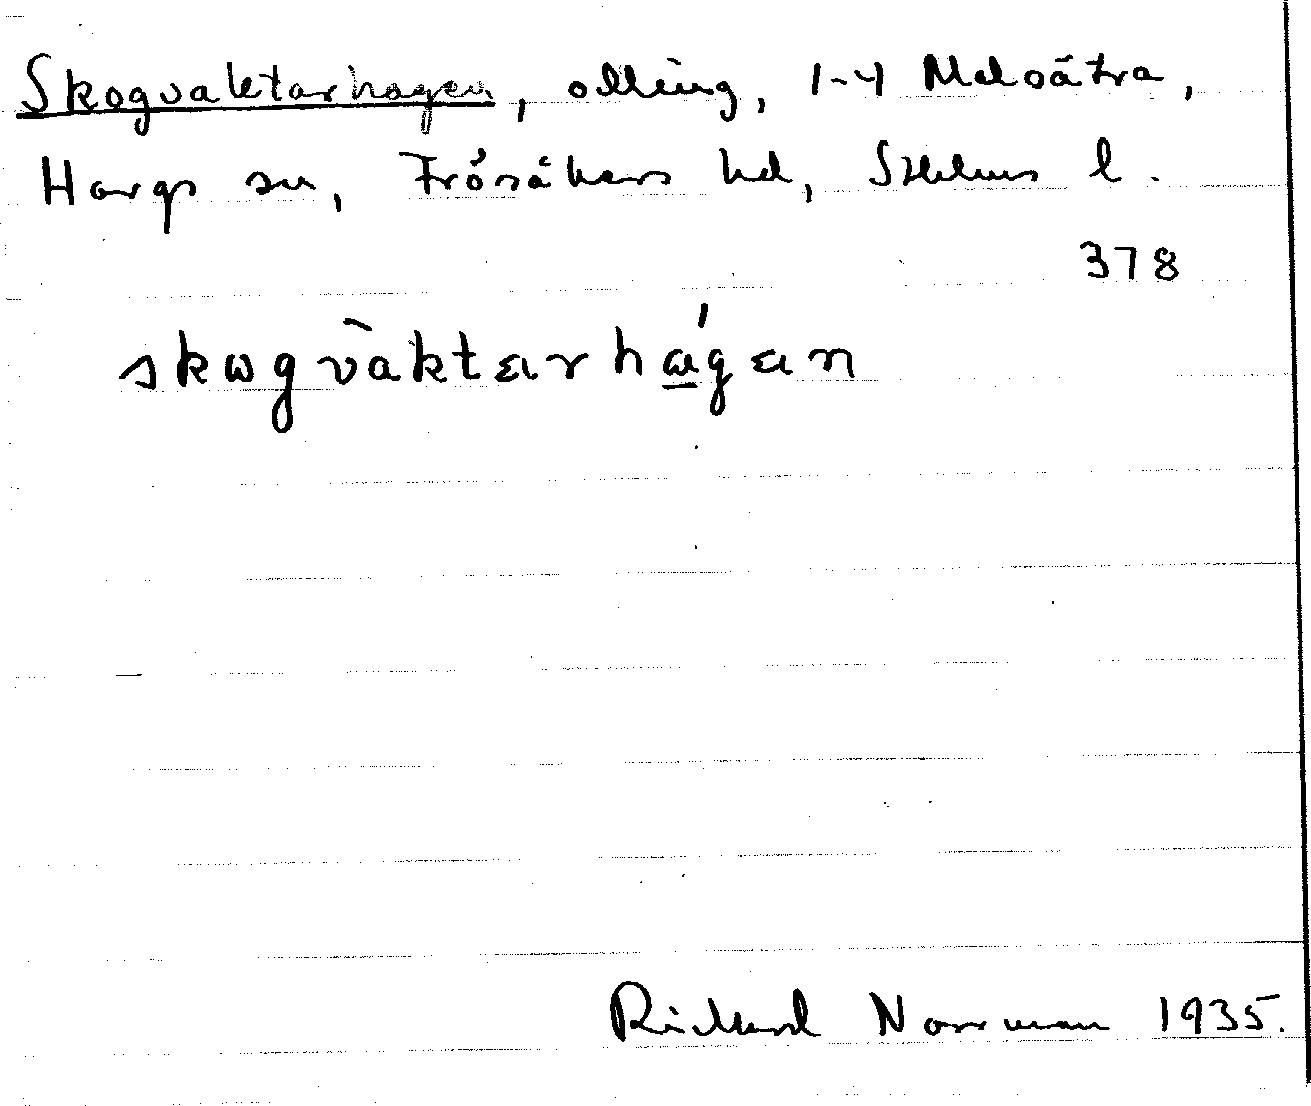 Skogvaktarhagen, odling, 1-4 Malsätra,
Hargs sn, Frösåkers hd, Sthlms l.
378
skωgvàktarhώ̲gan
Rickard Norrman 1935.